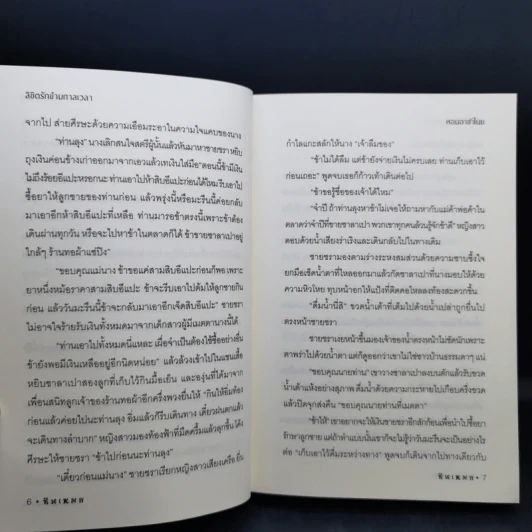 ลิขิตรักข้ามกาลเวลา
จากไป ส่ายศีรษะด้วยความเอือมระอาในความใจแคบของนาง
"ท่านลุง" นางเลิกสนใจสตรีผู้นั้นแล้วหันมาหาชายชรา หยิบ
ถุงเงินค่อนข้างเก่าออกมาจากเอวแล้วเทเงินใส่มือ "ตอนนี้ข้ามีเงิน
ไม่ถึงร้อยอีแปะหรอกนะ ท่านเอาไปห้าสิบอีแปะก่อนได้ไหม รีบเอาไป
ซื้อยาให้ลูกชายของท่านก่อน แล้วพรุ่งนี้หรือมะรืนนี้ค่อยกลับ
มาเอาอีกห้าสิบอีแปะที่เหลือ ท่านมารอข้าตรงนี้เพราะข้าต้อง
เดินผ่านทุกวัน หรือจะไปหาข้าในตลาดก็ได้ ข้าขายซาลาเปาอยู่
ใกล้ๆ ร้านทอผ้าแซ่ปิง"
"ขอบคุณแม่นาง ข้าขอแค่สามสิบอีแปะก่อนก็พอ เพราะ
ยาหนึ่งหม้อราคาสามสิบอีแปะ ข้าจะรีบเอาไปต้มให้ลูกชายกิน
ก่อน แล้ววันมะรืนนี้ข้าจะกลับมาเอาอีกเจ็ดสิบอีแปะ" ชายชรา
ไม่อาจใจร้ายรับเงินทั้งหมดมาจากเด็กสาวผู้มีเมตตานางนี้ได้
"ท่านเอาไปทั้งหมดนี่แหละ เผื่อจำเป็นต้องใช้ซื้ออย่างอื่น
ข้ายังพอมีเงินเหลืออยู่อีกนิดหน่อย" แล้วล้วงเข้าไปในแขนเสื้อ
หยิบซาลาเปาสองลูกที่เก็บไว้กินมื้อเย็น และองุ่นที่ได้มาจาก
เพื่อนสนิทลูกเจ้าของร้านทอผ้าอีกครึ่งพวงยื่นให้ "กินให้อิ่มท้อง
ก่อนแล้วค่อยไปนะท่านลุง อิ่มแล้วก็รีบเดินทาง เดี๋ยวฝนตกแล้ว
จะเดินทางลำบาก" หญิงสาวมองท้องฟ้าที่มืดครึ้มแล้วลุกขึ้น โค้ง
ศีรษะให้ชายชรา "ข้าไปก่อนนะท่านลุง"
"เดี๋ยวก่อนแม่นาง" ชายชราเรียกหญิงสาวเสียงเครือ ยื่น
6 •
หอมดาสาวินีย์
กำไลแกะสลักให้นาง "เจ้าลืมของ"
"ข้าไม่ได้ลืม แต่ข้ายังจ่ายเงินไม่ครบเลย ท่านเก็บเอาไว้
ก่อนเถอะ" พูดจบเธอก็ก้าวเท้าเดินต่อไป
"ข้าขอรู้ชื่อของเจ้าได้ไหม"
"จำปี ถ้าท่านลุงหาข้าไม่เจอให้ถามหากับแม่ค้าพ่อค้าใน
ตลาดว่าจำปีที่ขายซาลาเปา พวกเขาทุกคนล้วนรู้จักข้าดี" หญิงสาว
ตอบด้วยน้ำเสียงร่าเริงและเดินกลับไปในทางเดิม
ชายชรามองตามร่างระหงสมส่วนด้วยความซาบซึ้งใจ
ยกมือเช็ดน้ำตาที่ไหลออกมาแล้วกัดซาลาเปาที่นางมอบให้ด้วย
ความหิวโหย ทุบหน้าอกให้แป้งที่ติดคอไหลลงท้องสะดวกขึ้น
"ดื่มน้ำนี่สิ" ขวดน้ำเต้าที่เต็มไปด้วยน้ำเปล่าถูกยื่นไป
ตรงหน้าชายชรา
ชายชราเงยหน้าขึ้นมองเจ้าของน้ำตรงหน้าไม่ชัดนักเพราะ
ตาพร่าไปด้วยน้ำตา แต่ก็ดูออกว่าเขาไม่ใช่ชาวบ้านธรรมดาๆ แน่
"ขอบคุณนายท่าน" เขาวางซาลาเปาลงบนตักแล้วรับขวด
น้ำเต้าแห้งอย่างสุภาพ ดื่มน้ำด้วยความกระหายไปเกือบครึ่งขวด
แล้วปิดจุกส่งคืน "ขอบคุณนายท่านที่เมตตา"
"ข้าให้" เขาอยากจะให้เงินชายชราอีกสักก้อนเพื่อนำไปซื้อยา
รักษาลูกชาย แต่ถ้าทำแบบนั้นเขาก็จะไม่รู้ว่าวันมะรืนจะเป็นอย่างไร
ต่อ "เก็บเอาไว้ดื่มระหว่างทาง" พูดจบก็เดินจากไปทางเดียวกับ
• 7